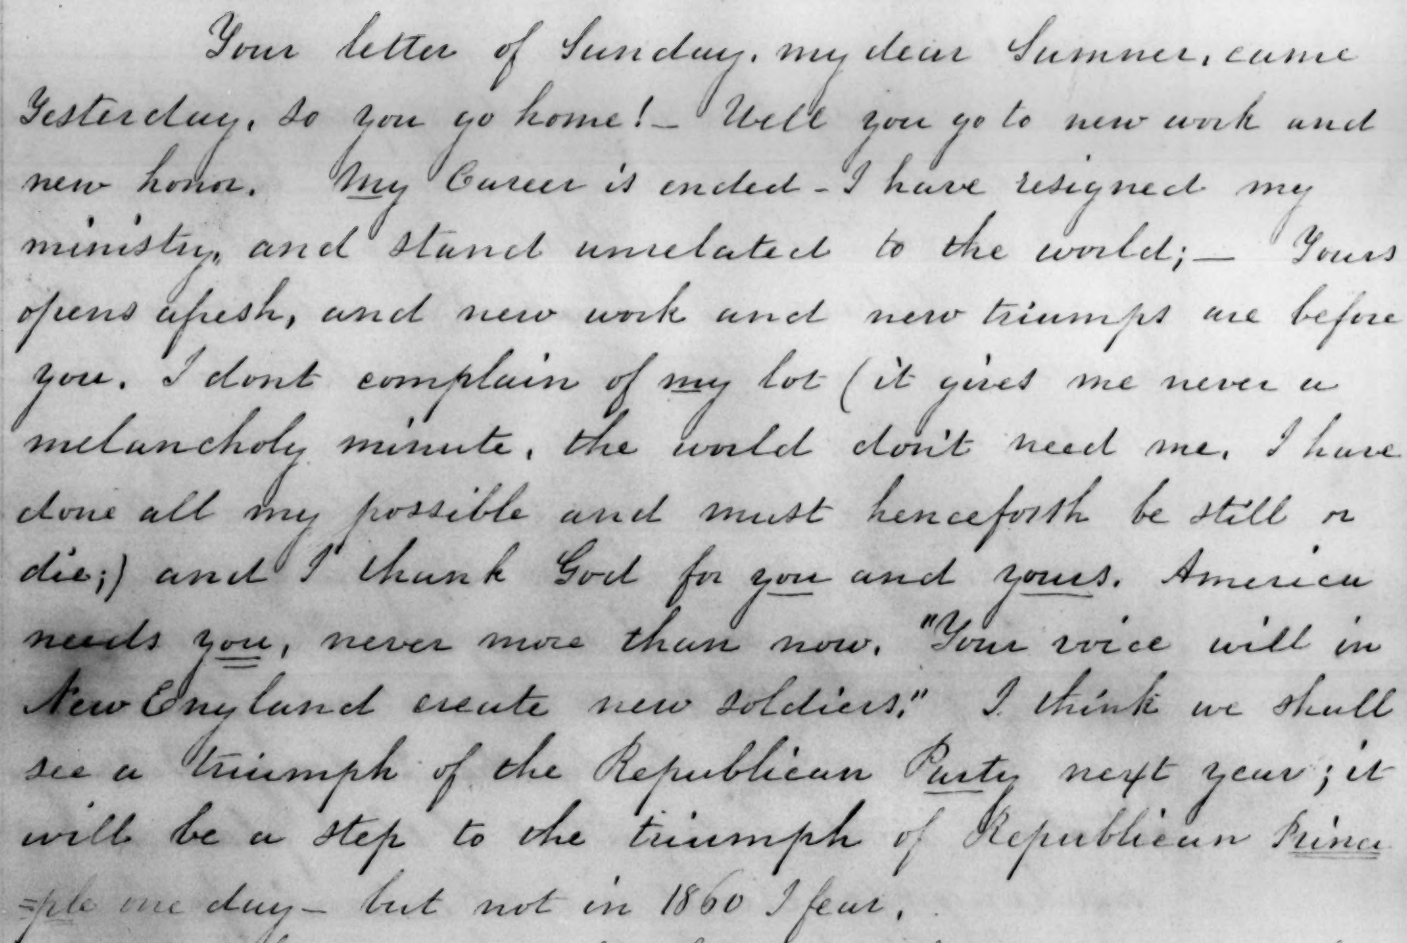 Your letter of Sunday, my dear Sumner, came
Yesterday, so you go home! - Well you go to new work and
new honor. My Career is ended - I have resigned my
ministry, and stand unrelated to the world; - Yours
opens afresh, and new work and new triumps are before
you. I dont complain of my lot (it gives me never a
melancholy minute, the world don't need me. I have
done all my possible and must henceforth be still or
die;) and I thank God for you and yours. America
needs you, never more than now. "Your voice will in
New England create new soldiers." I think we shall
see a triumph of the Republican Party next year; it
will be a step to the triumph of Republican Princi
=ple one day - but not in 1860 I fear.